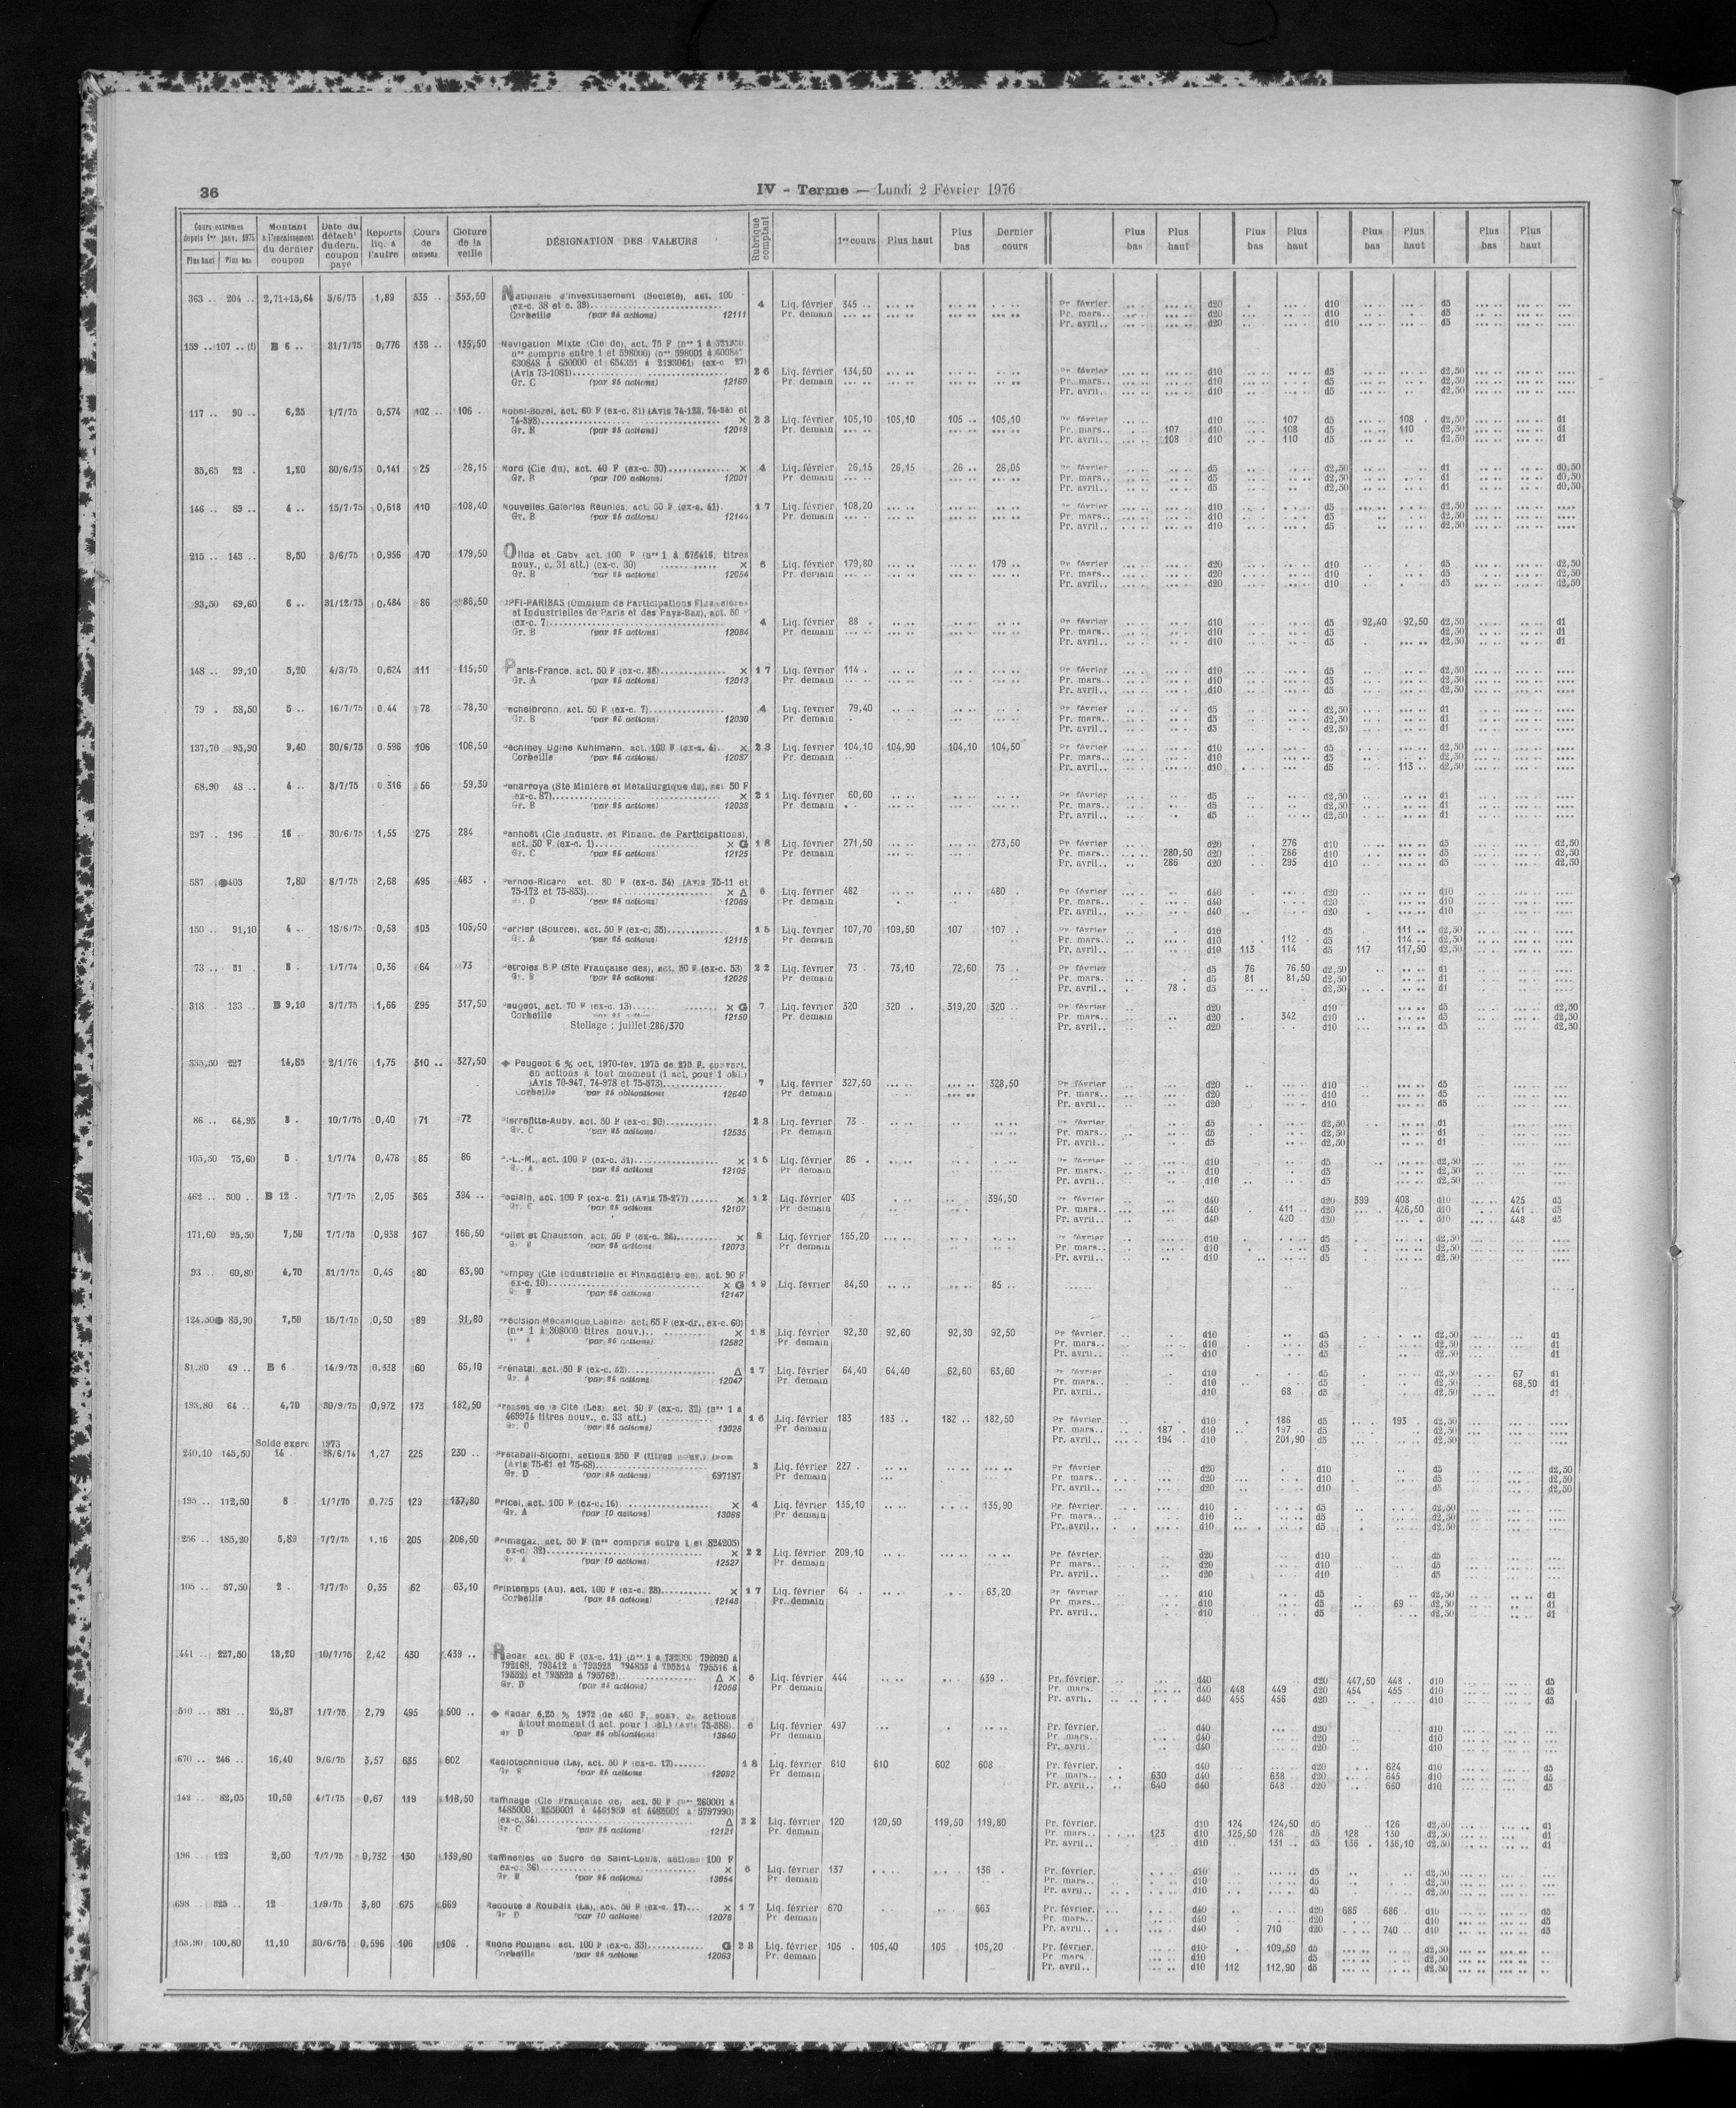 36
IV - Terme — Lundi 2 Février 1976
Cours extrêmes depuis 1er janv. 1975 Plus haut Plus bas
Montant à l'encaissement du dernier coupon
Date du détach' du dern. coupon payé
Reports liq. à l'autre
Cours de compens.
Clôture de la veille
DÉSIGNATION DES VALEURS
Rubrique comptant
1er cours Plus haut Plus bas Dernier cours
Plus bas Plus haut Plus bas Plus haut Plus bas Plus haut Plus bas Plus haut
363 .. 204 .. 2,71+15,64 5/6/75 1,89 335 .. 353,50 Nationale d'Investissement (Société), act. 100
(ex-c. 38 et c. 39) 4 Liq. février 345 .. Pr. février d20 d10 d5
Corbeille (par 25 actions) 12111 Pr. demain Pr. mars.. d20 d10 d5
Pr. avril.. d20 d10 d5
159 .. 107 .. (1) B 6 .. 31/7/75 0,776 138 .. 135,50 Navigation Mixte (Cie de), act. 75 F
630848 à 650000 et 654351 à 2193061) (ex-c 27)
(Avis 73-1081) 26 Liq. février 134,50 Pr. février d10 d5 d2,50
Gr. C (par 25 actions) 12160 Pr. demain Pr. mars.. d10 d5 d2,50
Pr. avril.. d10 d5 d2,50
117 .. 90 .. 6,25 1/7/75 0,574 102 .. 106 . Nobel-Bozel, act. 60 F (ex-c. 81)
74-898) × 23 Liq. février 105,10 105,10 105 .. 105,10 Pr. février d10 107 d5 108 . d2,50 d1
Gr. B (par 25 actions) 12019 Pr. demain Pr. mars.. 107 d10 108 d5 110 d2,50 d1
Pr. avril.. 108 d10 110 d5 d2,50 d1
35,65 22 . 1,20 30/6/75 0,141 25 26,15 Nord (Cie du), act. 40 F (ex-c. 30) × 4 Liq. février 26,15 26,15 26 .. 26,05 Pr. février d5 d2,50 d1 d0,50
Gr. B (par 100 actions) 12001 Pr. demain Pr. mars.. d5 d2,50 d1 d0,50
Pr. avril.. d5 d2,50 d1 d0,50
146 .. 89 .. 4 .. 15/7/75 0,618 110 108,40 Nouvelles Galeries Réunies, act. 50 F (ex-c. 41) 17 Liq. février 108,20 Pr. février d10 d5 d2,50
Gr. B (par 25 actions) 12144 Pr. demain Pr. mars.. d10 d5 d2,50
Pr. avril.. d10 d5 d2,50
215 .. 143 .. 8,50 3/6/75 0,956 170 179,50 Olida et Caby, act. 100 F (nos 1 à 676416, titres
nouv., c. 31 att.) (ex-c. 30) × 6 Liq. février 179,80 179 .. Pr. février d20 d10 d5 d2,50
Gr. B (par 25 actions) 12054 Pr. demain Pr. mars.. d20 d10 d5 d2,50
Pr. avril.. d20 d10 d5 d2,50
93,50 69,60 6 .. 31/12/75 0,484 86 86,50 OPFI-PARIBAS (Omnium de Participations Financières
et Industrielles de Paris et des Pays-Bas), act. 50 F
(ex-c. 7) 4 Liq. février 88 . Pr. février d10 d5 92,40 92,50 d2,50 d1
Gr. B (par 25 actions) 12084 Pr. demain Pr. mars.. d10 d5 d2,50 d1
Pr. avril.. d10 d5 d2,50 d1
148 .. 99,10 5,20 4/3/75 0,624 111 115,50 Paris-France, act. 50 F (ex-c. 38) × 17 Liq. février 114 . Pr. février d10 d5 d2,50
Gr. A (par 25 actions) 12013 Pr. demain Pr. mars.. d10 d5 d2,50
Pr. avril.. d10 d5 d2,50
79 . 58,50 5 .. 16/7/75 0,44 78 78,30 Pechelbronn, act. 50 F (ex-c. 7) 4 Liq. février 79,40 Pr. février d5 d2,50 d1
Gr. B (par 25 actions) 12030 Pr. demain Pr. mars.. d5 d2,50 d1
Pr. avril.. d5 d2,50 d1
137,70 95,90 9,40 30/6/75 0,596 106 106,50 Péchiney Ugine Kuhlmann, act. 100 F (ex-c. 4) × 23 Liq. février 104,10 104,90 104,10 104,50 Pr. février d10 d5 d2,50
Corbeille (par 25 actions) 12087 Pr. demain Pr. mars.. d10 d5 d2,50
Pr. avril.. d10 d5 113 .. d2,50
68,90 48 .. 4 .. 3/7/75 0,316 56 59,30 Penarroya (Sté Minière et Métallurgique de), act 50 F
(ex-c. 87) × 21 Liq. février 60,60 Pr. février d5 d2,50 d1
Gr. B (par 25 actions) 12038 Pr. demain Pr. mars.. d5 d2,50 d1
Pr. avril.. d5 d2,50 d1
297 .. 196 16 . 30/6/75 1,55 275 284 Penhoët (Cie Industr. et Financ. de Participations),
act. 50 F (ex-c. 1) × G 18 Liq. février 271,50 273,50 Pr. février d20 276 d10 d5 d2,50
Gr. C (par 25 actions) 12125 Pr. demain Pr. mars.. 280,50 d20 286 d10 d5 d2,50
Pr. avril.. 286 d20 295 d10 d5 d2,50
587 403 7,80 8/7/75 2,68 495 483 . Pernod-Ricard act. 80 F (ex-c. 34) (Avis 75-11 et
75-172 et 75-853) × Δ 6 Liq. février 482 480 Pr. février d40 d20 d10
Gr. D (par 25 actions) 12089 Pr. demain Pr. mars.. d40 d20 d10
Pr. avril.. d40 d20 d10
150 .. 91,10 4 .. 18/6/75 0,58 103 105,50 Perrier (Source), act. 50 F (ex-c. 35) 15 Liq. février 107,70 109,50 107 107 .. Pr. février d10 d5 111 .. d2,50
Gr. A (par 25 actions) 12115 Pr. demain Pr. mars.. d10 112 . d5 114 .. d2,50
Pr. avril.. d10 113 114 d5 117 117,50 d2,50
73 .. 51 3 . 1/7/74 0,36 64 73 Pétroles B P (Sté Française des), act. 50 F (ex-c. 53) 22 Liq. février 73 . 73,10 72,60 73 .. Pr. février d5 76 76,50 d2,50 d1
Gr. B (par 25 actions) 12028 Pr. demain Pr. mars.. d5 81 81,50 d2,50 d1
Pr. avril.. 78 . d5 d2,50 d1
318 133 .. B 9,10 3/7/75 1,66 295 317,50 Peugeot, act. 70 F (ex-c. 13) × G 7 Liq. février 320 320 . 319,20 320 .. Pr. février d20 d10 d5 d2,50
Corbeille 12150 Pr. demain Pr. mars.. d20 342 d10 d5 d2,50
Stellage : juillet 286/370 Pr. avril.. d20 d10 d5 d2,50
335,50 227 14,85 2/1/76 1,75 310 .. 327,50 ◆ Peugeot 6 % oct. 1970-fév. 1975 de 275 F, convert.
en actions à tout moment (1 act. pour 1 obl.)
(Avis 70-947, 74-978 et 75-573) 7 Liq. février 327,50 328,50 Pr. février d20 d10 d5
Corbeille (par 25 obligations) 12640 Pr. demain Pr. mars.. d20 d10 d5
Pr. avril.. d20 d10 d5
86 .. 64,95 3 . 10/7/75 0,40 71 72 Pierrefitte-Auby, act. 50 F (ex-c. 20) 23 Liq. février 73 . Pr. février d5 d2,50 d1
Gr. C (par 25 actions) 12535 Pr. demain Pr. mars.. d5 d2,50 d1
Pr. avril.. d5 d2,50 d1
105,50 75,60 5 . 1/7/74 0,478 85 86 P.-L.-M., act. 100 F (ex-c. 31) × 15 Liq. février 86 . Pr. février d10 d5 d2,50
Gr. A (par 25 actions) 12105 Pr. demain Pr. mars.. d10 d5 d2,50
Pr. avril.. d10 d5 d2,50
462 .. 300 .. B 12 . 7/7/75 2,05 365 394 .. Poclain, act. 100 F (ex-c. 21) (Avis 75-277) × 12 Liq. février 403 394,50 Pr. février d40 d20 399 408 . d10 425 d5
Gr. C (par 25 actions) 12107 Pr. demain Pr. mars.. d40 411 d20 426,50 d10 441 . d5
Pr. avril.. d40 420 d20 d10 448 d5
171,60 95,50 7,50 7/7/75 0,938 167 166,50 Pollet et Chausson, act. 50 F (ex-c. 26) × 8 Liq. février 165,20 Pr. février d10 d5 d2,50
Gr. B (par 25 actions) 12073 Pr. demain Pr. mars.. d10 d5 d2,50
Pr. avril.. d10 d5 d2,50
93 .. 60,80 4,70 31/7/75 0,45 80 83,90 Pompey (Cie Industrielle et Financière de), act. 90 F
ex-c. 10) × G 19 Liq. février 84,50 85 ..
(par 25 actions) 12147
124,50 85,90 7,50 15/7/75 0,50 89 91,80 Précision Mécanique Labinal act. 65 F (ex-dr., ex-c. 60)
(nos 1 à 308000 titres nouv.) × 18 Liq. février 92,30 92,60 92,30 92,50 Pr. février. d10 d5 d2,50 d1
(par 25 actions) 12582 Pr. demain Pr. mars.. d10 d5 d2,50 d1
Pr. avril.. d10 d5 d2,50 d1
81,80 49 .. B 6 . 14/9/75 0,338 60 65,10 Prénatal, act. 50 F (ex-c. 32) Δ 17 Liq. février 64,40 64,40 62,60 63,60 Pr. février d10 d5 d2,50 67 d1
Gr. A (par 25 actions) 12047 Pr. demain Pr. mars.. d10 d5 d2,50 68,50 d1
Pr. avril.. d10 68 d5 d2,50 d1
193,80 64 .. 4,70 30/9/75 0,972 173 182,50 Presses de la Cité (Les), act. 50 F (ex-c. 32) (nos 1 à
469974 titres nouv., c. 33 att.) 16 Liq. février 183 183 .. 182 .. 182,50 Pr. février. d10 186 d5 193 . d2,50
Gr. D (par 25 actions) 13028 Pr. demain Pr. mars.. 187 . d10 197 .. d5 d2,50
Pr. avril.. 194 . d10 201,90 d5 d2,50
Solde exerc 1973
240,10 145,50 14 . 28/6/74 1,27 225 230 .. Prétabail-Sicomi, actions 250 F
(Avis 75-61 et 75-68) 3 Liq. février 227 . Pr. février d20 d10 d5 d2,50
Gr. D (par 25 actions) 697187 Pr. demain Pr. mars.. d20 d10 d5 d2,50
Pr. avril.. d20 d10 d5 d2,50
195 .. 112,50 5 . 1/7/75 0,725 129 137,80 Pricel, act. 100 F (ex-c. 16) × 4 Liq. février 135,10 135,90 Pr. février. d10 d5 d2,50
Gr. A (par 10 actions) 13086 Pr. demain Pr. mars.. d10 d5 d2,50
Pr. avril.. d10 d5 d2,50
256 .. 185,20 5,80 7/7/75 1,16 205 208,50 Primagaz, act. 50 F (nos compris entre 1 et 824205)
ex-c. 32) × 22 Liq. février 209,10 Pr. février. d20 d10 d5
(par 10 actions) 12527 Pr. demain Pr. mars.. d20 d10 d5
Pr. avril.. d20 d10 d5
105 .. 57,50 2 . 7/7/75 0,35 62 63,10 Printemps (Au), act. 100 F (ex-c. 28) × 17 Liq. février 64 . 63,20 Pr. février d10 d5 d2,50 d1
Corbeille (par 25 actions) 12148 Pr. demain Pr. mars.. d10 d5 69 d2,50 d1
Pr. avril.. d10 d5 d2,50 d1
441 .. 227,50 13,20 10/7/75 2,42 430 439 .. Radar act. 50 F (ex-c. 11)
792168, 793412 à 793923 794853 à 795514 795516 à
et 795523 à 795762) Δ × 6 Liq. février 444 439 . Pr. février. d40 d20 447,50 448 . d10 d5
Gr. D (par 25 actions) 12056 Pr. demain Pr. mars. d40 448 449 d20 454 455 d10 d5
Pr. avril. d40 455 456 d20 d10 d5
510 .. 381 .. 25,87 1/7/75 2,79 495 500 .. ◆ Radar 6,25 % 1972 de 460 F, conv. en actions
à tout moment (1 act. pour 1 obl.) (Avis 75-388). 6 Liq. février 497 Pr. février. d40 d20 d10
Gr. D (par 25 obligations) 13640 Pr. demain Pr. mars. d40 d20 d10
Pr. avril.. d40 d20 d10
670 .. 246 .. 16,40 9/6/75 3,57 635 602 Radiotechnique (La), act. 50 F (ex-c. 12) 18 Liq. février 610 610 602 608 Pr. février. d40 d20 624 d10 d5
Gr. B (par 25 actions) 12092 Pr. demain Pr. mars.. 630 d40 638 d20 645 d10 d5
Pr. avril.. 640 d40 648 d20 660 d10 d5
142 .. 82,05 10,50 4/7/75 0,67 119 118,50 Raffinage (Cie Française de) act. 50 F (nos 260001 à
(ex-c. 34) Δ 22 Liq. février 120 120,50 119,50 119,80 Pr. février. d10 124 124,50 d5 126 d2,50 d1
Gr. C (par 25 actions) 12121 Pr. demain Pr. mars.. 123 d10 125,50 128 d5 128 130 d2,50 d1
Pr. avril.. d10 131 .. d5 136 . 136,10 d2,50 d1
196 .. 122 2,50 7/7/75 0,732 130 139,90 Raffineries de Sucre de Saint-Louis, actions 100 F
ex-c 36) × 6 Liq. février 137 136 . Pr. février. d10 d5 d2,50
Gr. B (par 25 actions) 13054 Pr. demain Pr. mars.. d10 d5 d2,50
Pr. avril.. d10 d5 d2,50
698 .. 325 .. 12 1/9/75 3,80 675 669 Redoute à Roubaix (La), act. 50 F (ex-c. 17) × 17 Liq. février 670 663 Pr. février. d40 d20 685 686 d10 d5
Gr. D (par 10 actions) 12078 Pr. demain Pr. mars.. d40 d20 d10 d5
Pr. avril.. d40 710 d20 740 d10 d5
153,90 100,80 11,10 30/6/75 0,596 106 106 . Rhône Poulenc act. 100 F (ex-c. 33) G 23 Liq. février 105 . 105,40 105 105,20 Pr. février. d10 109,50 d5 d2,50
Corbeille (par 25 actions) 12063 Pr. demain Pr. mars. d10 d5 d2,50
Pr. avril.. d10 112 112,90 d5 d2,50